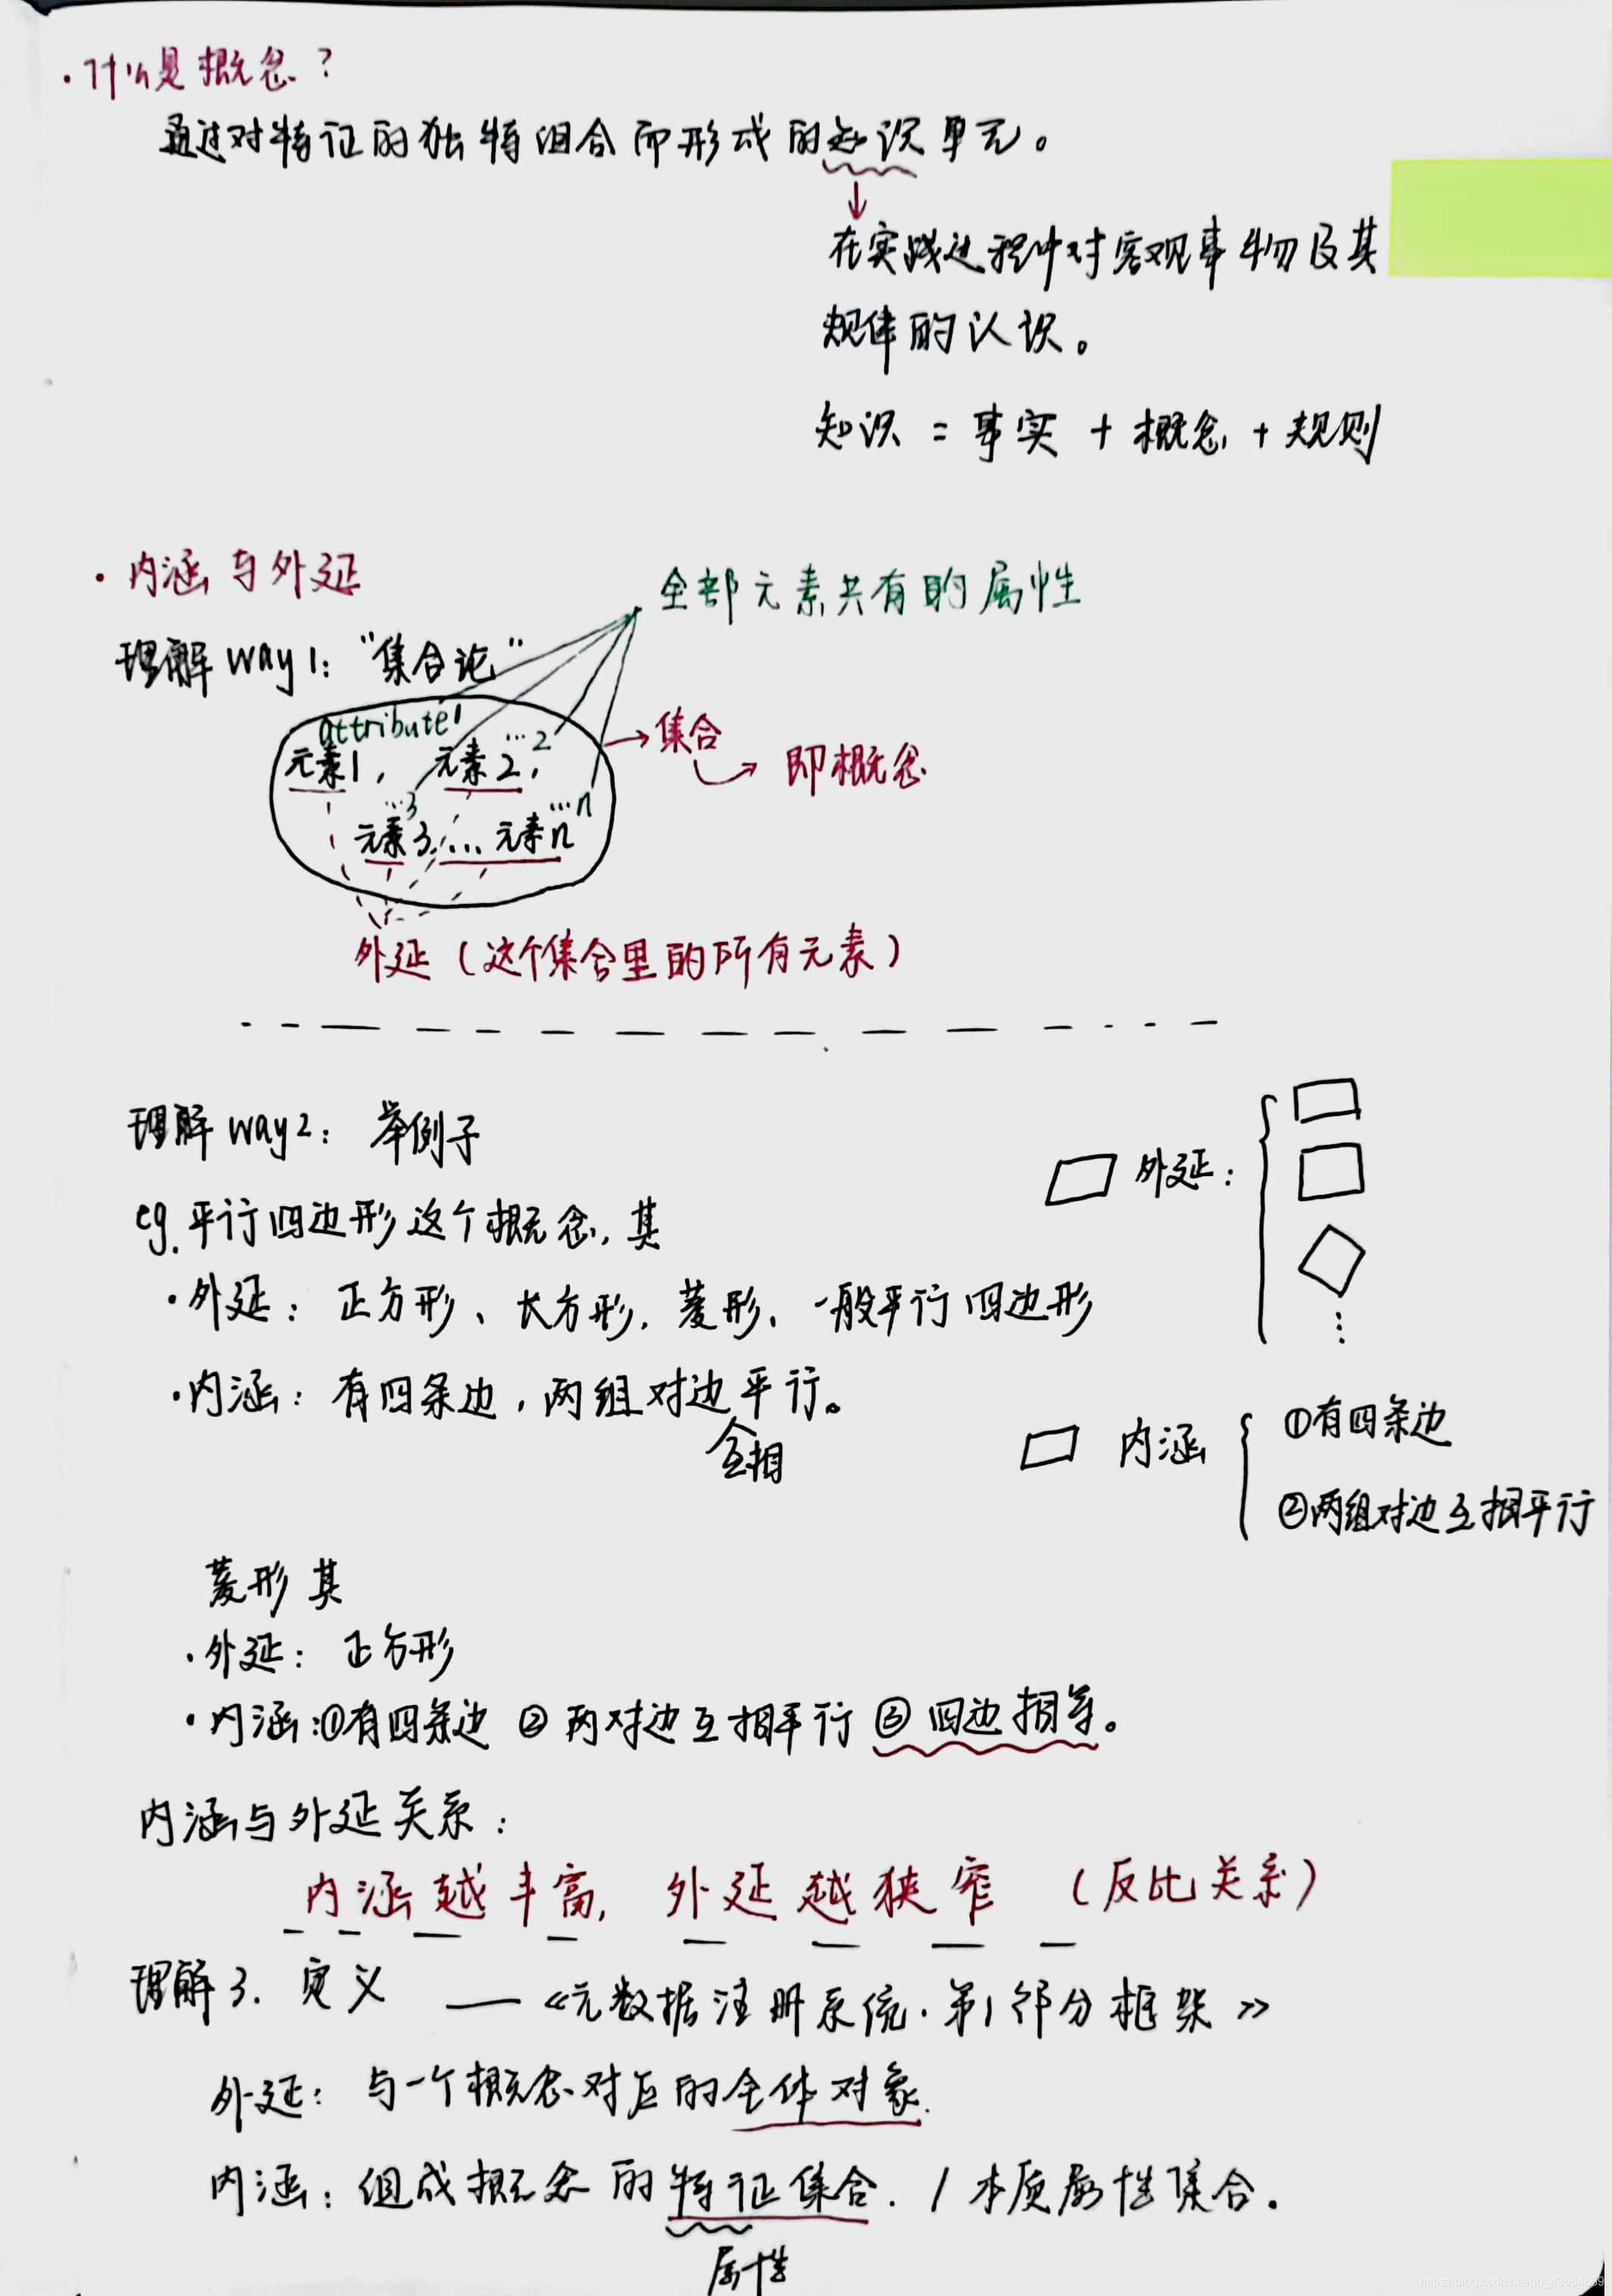 ·什么是概念？
通过对特征的独特组合而形成的知识单元。
在实践过程中对客观事物及其
规律的认识。
知识 = 事实 + 概念 + 规则
·内涵与外延
全部元素共有的属性
理解way1：“集合论”
attribute1
元素1， 元素2，
…2
→集合
即概念
…3
…n
元素3，… 元素n
外延（这个集合里的所有元素）
理解way2：举例子
外延：
eg.平行四边形这个概念，其
·外延：正方形、长方形、菱形、一般平行四边形
⋮
·内涵：有四条边，两组对边平行。
互相
内涵
①有四条边
②两组对边互相平行
菱形其
·外延：正方形
·内涵：①有四条边 ②两对边互相平行 ③四边相等。
内涵与外延关系：
内涵越丰富，外延越狭窄（反比关系）
理解3. 定义 ——《元数据注册系统·第1部分框架》
外延：与一个概念对应的全体对象.
内涵：组成概念的特征集合. / 本质属性集合.
属性